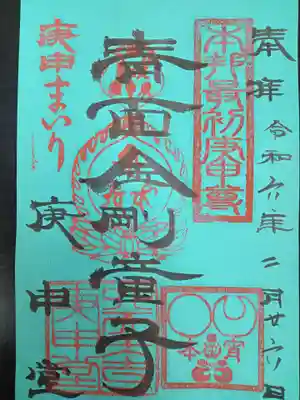 奉拝 令和六年二月廿六日
本邦最初庚申尊
青面金剛童子
庚申まいり
庚申堂